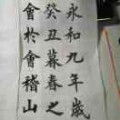 永和九年歲
癸丑暮春之
會於會稽山